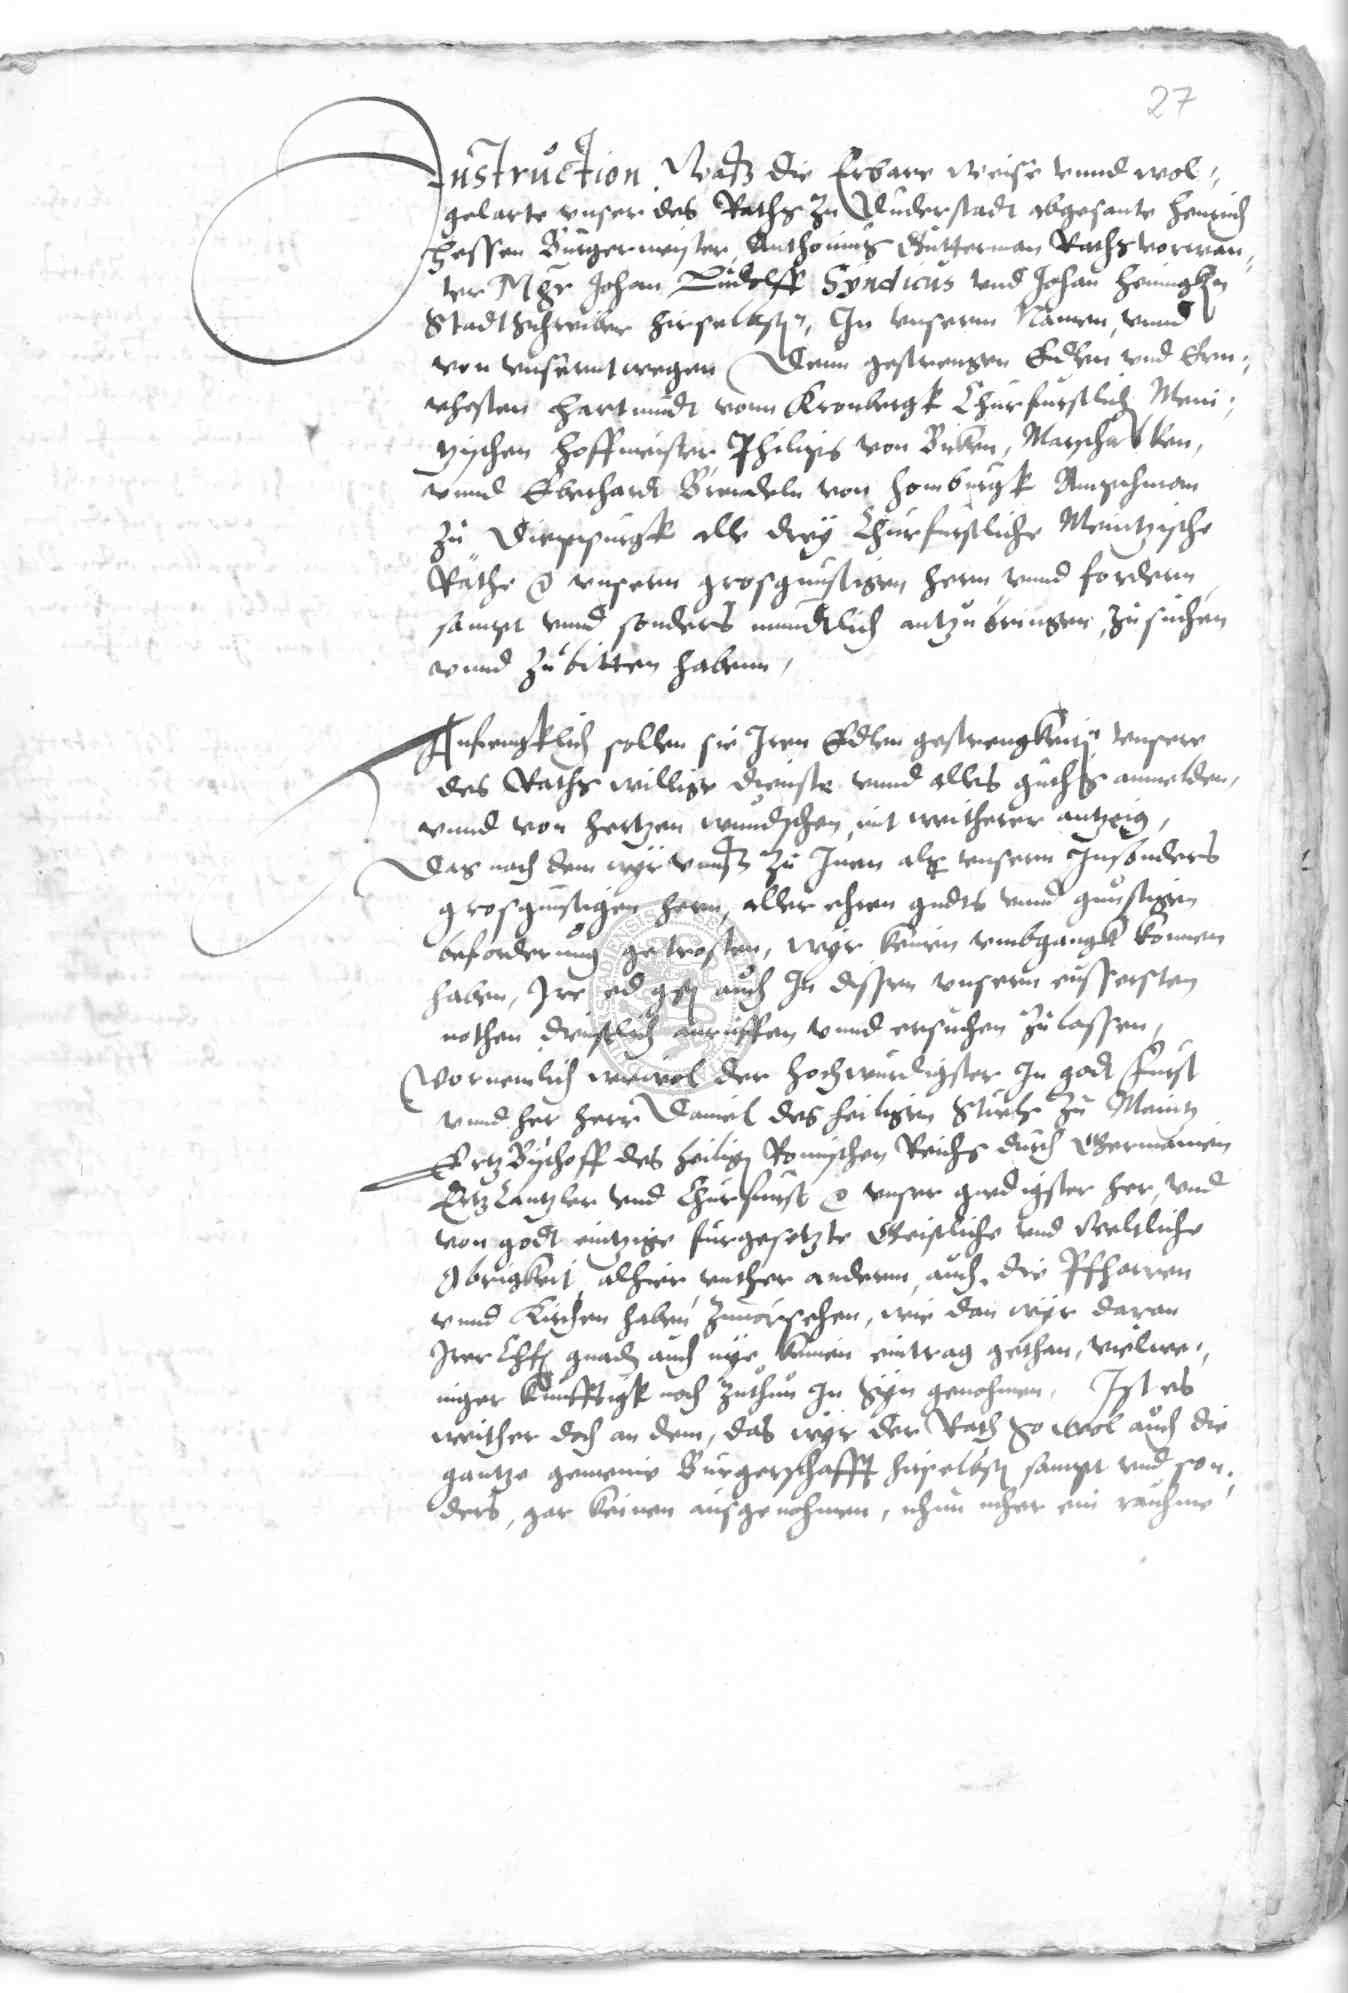 27
Instruction Waß die Erbare Weise vnnd wol-
gelarte vnser des Raths zu Duderstadt abgesante Henrich
Hessen Burgermeister, Anthonius Gutterman Raths vorwan-
ter Mgr Johan Rudolff Syndicus vnd Johan Henningken
Stadtschreiber hieselbst, In vnserm Namen, vnnd
von vnserntwegen Denn gestrengen Edlen vnd Ern-
vhesten Hartmudt vonn Kronbergk Churfurstlich Mein-
tzischen Hoffmeister Philips von Bicken, Marschalken,
vnnd Eberhardt Brendeln von Homburgk Amptman
zu Diepurgk alle drey Churfurstliche Meintzische
Räthe vnsern grosgunstigen Hern vnnd fordern
sampt vnnd sonders mundtlich antzubringen, zusuchen
vnnd zubitten habenn,
Anfengklich sollen sie Iren Edlen gestrengkeit vnsere
des Raths willige dienste vnnd alles guths anmelden,
vnnd von hertzen wundschen, mit weitherer antzeig,
Das nach dem wyr vnnß zu Inen als vnsern Insonders
grosgunstigen Hern, aller ehren gudts vnnd gunstigen
beforderung getrosten, wyr keinen vmbgangk konnen
haben, Ire ed gst auch In dissen vnsern eussersten
nothen dinstlich anruffen vnnd ersuchen zu lassen,
Vornemlich wiewol der Hochwurdigster In godt Furst
vnnd her Herr Daniel des heiligen Stuels zu Meintz
Ertz Bischoff des heilign Romischen Reichs durch Germanien
Ertz Cantzler vnd Churfurst vnser gnedigster Her, vnd
von godt eintzige furgesetzte Geistliche vnd Weltliche
Obrigkeit, alhier, vnther anderm, auch die Pfharren
vnnd Kirchen haben zuuorsehen, wie dan wyr daran
Irer Chf gnaden auch nye keinen eintrag gethan, vielwe-
niger kunfftigk noch zuthun In Syn genohmen, Ist es
weither doch an dem, das wyr der Rath so wol auch die
gantze gemeine Burgerschafft hieselbst sampt vnd son-
ders, gar keinen ausgenohmen, nhun vher ein rauhme